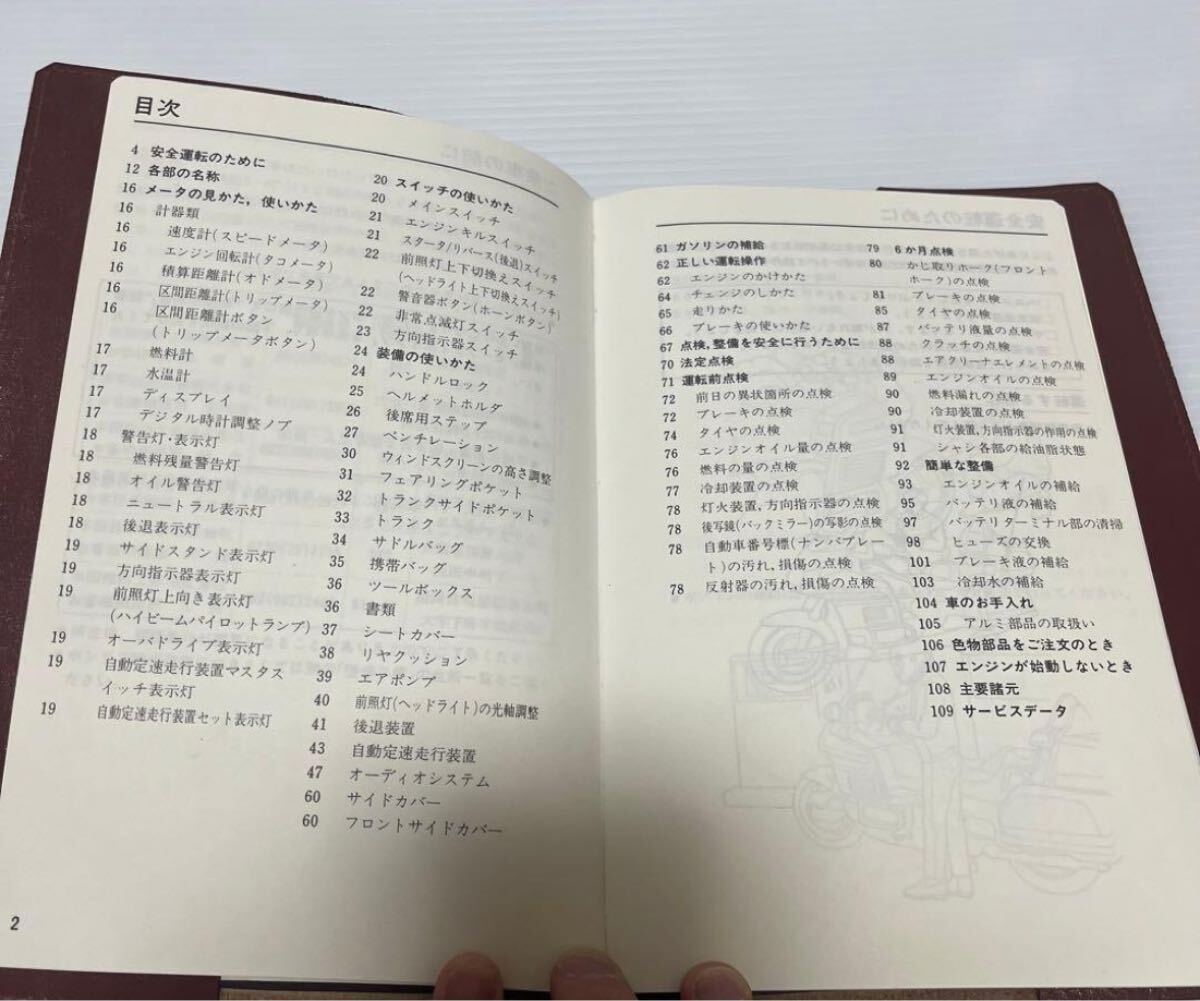 目次
4 安全運転のために
12 各部の名称
16 メータの見かた，使いかた
16 計器類
16 速度計(スピードメータ)
16 エンジン回転計(タコメータ)
16 積算距離計(オドメータ)
16 区間距離計(トリップメータ)
16 区間距離計ボタン
(トリップメータボタン)
17 燃料計
17 水温計
17 ディスプレイ
17 デジタル時計調整ノブ
18 警告灯・表示灯
18 燃料残量警告灯
18 オイル警告灯
18 ニュートラル表示灯
18 後退表示灯
19 サイドスタンド表示灯
19 方向指示器表示灯
19 前照灯上向き表示灯
(ハイビームパイロットランプ)
19 オーバドライブ表示灯
19 自動定速走行装置マスタス
イッチ表示灯
19 自動定速走行装置セット表示灯
20 スイッチの使いかた
20 メインスイッチ
21 エンジンキルスイッチ
21 スタータ/リバース(後退)スイッチ
22 前照灯上下切換えスイッチ
(ヘッドライト上下切換えスイッチ)
22 警音器ボタン(ホーンボタン)
22 非常点滅灯スイッチ
23 方向指示器スイッチ
24 装備の使いかた
24 ハンドルロック
25 ヘルメットホルダ
26 後席用ステップ
27 ベンチレーション
30 ウィンドスクリーンの高さ調整
31 フェアリングポケット
32 トランクサイドポケット
33 トランク
34 サドルバッグ
35 携帯バッグ
36 ツールボックス
36 書類
37 シートカバー
38 リヤクッション
39 エアポンプ
40 前照灯(ヘッドライト)の光軸調整
41 後退装置
43 自動定速走行装置
47 オーディオシステム
60 サイドカバー
60 フロントサイドカバー
2
61 ガソリンの補給
62 正しい運転操作
62 エンジンのかけかた
64 チェンジのしかた
65 走りかた
66 ブレーキの使いかた
67 点検，整備を安全に行うために
70 法定点検
71 運転前点検
72 前日の異状箇所の点検
72 ブレーキの点検
74 タイヤの点検
76 エンジンオイル量の点検
76 燃料の量の点検
77 冷却装置の点検
78 灯火装置，方向指示器の点検
78 後写鏡(バックミラー)の写影の点検
78 自動車番号標(ナンバプレー
ト)の汚れ，損傷の点検
78 反射器の汚れ，損傷の点検
79 6か月点検
80 かじ取りホーク(フロント
ホーク)の点検
81 ブレーキの点検
85 タイヤの点検
87 バッテリ液量の点検
88 クラッチの点検
88 エアクリーナエレメントの点検
89 エンジンオイルの点検
90 燃料漏れの点検
90 冷却装置の点検
91 灯火装置，方向指示器の作用の点検
91 シャシ各部の給油脂状態
92 簡単な整備
93 エンジンオイルの補給
95 バッテリ液の補給
97 バッテリターミナル部の清掃
98 ヒューズの交換
101 ブレーキ液の補給
103 冷却水の補給
104 車のお手入れ
105 アルミ部品の取扱い
106 色物部品をご注文のとき
107 エンジンが始動しないとき
108 主要諸元
109 サービスデータ